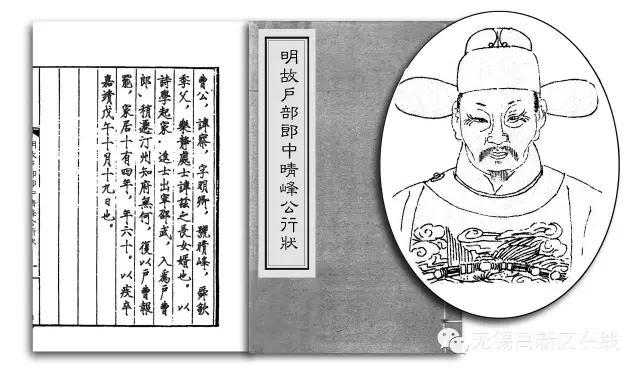 曹公，諱察，字明卿，號晴峰，舜歌
季父，樂靜處士諱之長女婿也。以
詩學起家，進士出宰邵武，入為戶曹
郎，稍遷汀州知府無何，復以戶曹報
罷，家居十有四年，年六十。以疾卒
嘉靖戊午十月十九日也。
明故戶部郎中晴峰公行狀
明故戶部郎中晴峰公行狀
无锡高新区在线